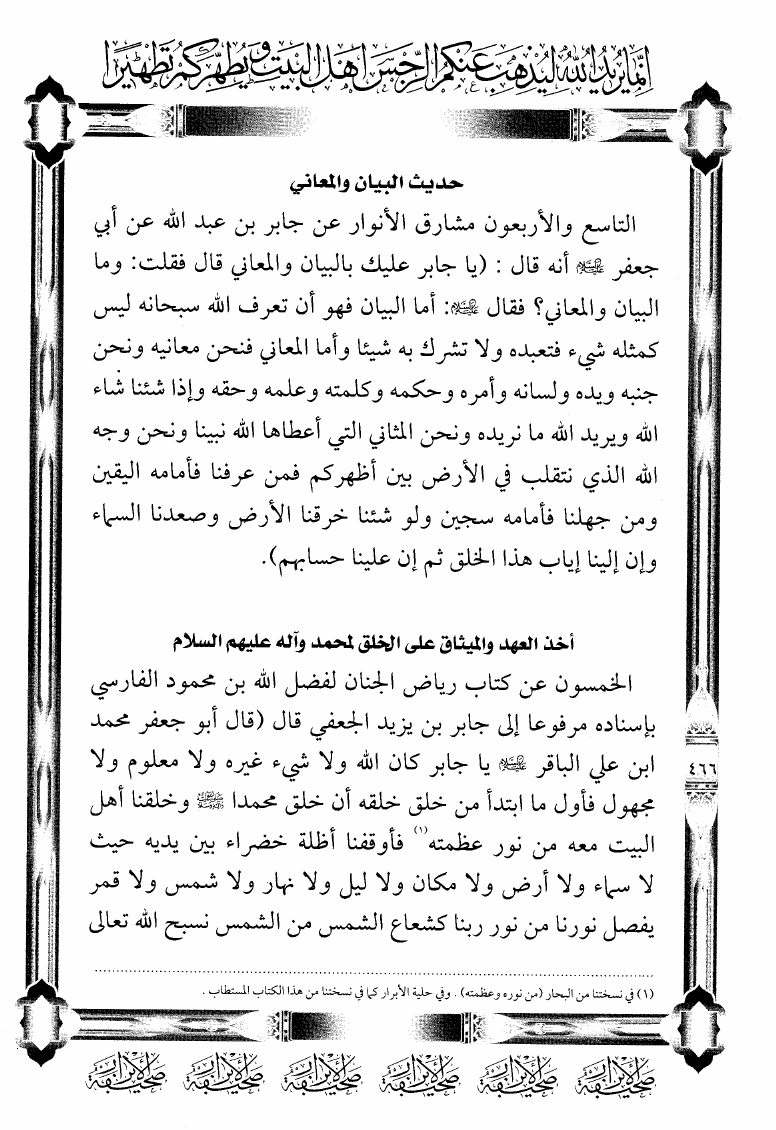 إنما يريد الله ليذهب عنكم الرجس أهل البيت ويطهركم تطهيرا
حديث البيان والمعاني
التاسع والأربعون مشارق الأنوار عن جابر بن عبد الله عن أبي
جعفر عليه السلام أنه قال : (يا جابر عليك بالبيان والمعاني قال فقلت: وما
البيان والمعاني؟ فقال عليه السلام: أما البيان فهو أن تعرف الله سبحانه ليس
كمثله شيء فتعبده ولا تشرك به شيئا وأما المعاني فنحن معانيه ونحن
جنبه ويده ولسانه وأمره وحكمه وكلمته وعلمه وحقه وإذا شئنا شاء
الله ويريد الله ما نريده ونحن المثاني التي أعطاها الله نبينا ونحن وجه
الله الذي نتقلب في الأرض بين أظهركم فمن عرفنا فأمامه اليقين
ومن جهلنا فأمامه سجين ولو شئنا خرقنا الأرض وصعدنا السماء
وإن إلينا إياب هذا الخلق ثم إن علينا حسابهم).
أخذ العهد والميثاق على الخلق لمحمد وآله عليهم السلام
الخمسون عن كتاب رياض الجنان لفضل الله بن محمود الفارسي
بإسناده مرفوعا إلى جابر بن يزيد الجعفي قال (قال أبو جعفر محمد
ابن علي الباقر عليه السلام يا جابر كان الله ولا شيء غيره ولا معلوم ولا
مجهول فأول ما ابتدأ من خلق خلقه أن خلق محمدا ﷺ وخلقنا أهل
البيت معه من نور عظمته(١) فأوقفنا أظلة خضراء بين يديه حيث
لا سماء ولا أرض ولا مكان ولا ليل ولا نهار ولا شمس ولا قمر
يفصل نورنا من نور ربنا كشعاع الشمس من الشمس نسبح الله تعالى
٤٦٦
(١) في نسختنا من البحار (من نوره وعظمته) . وفي حلية الأبرار كما في نسختنا من هذا الكتاب المستطاب .
صحيفة الأبرار صحيفة الأبرار صحيفة الأبرار صحيفة الأبرار صحيفة الأبرار صحيفة الأبرار